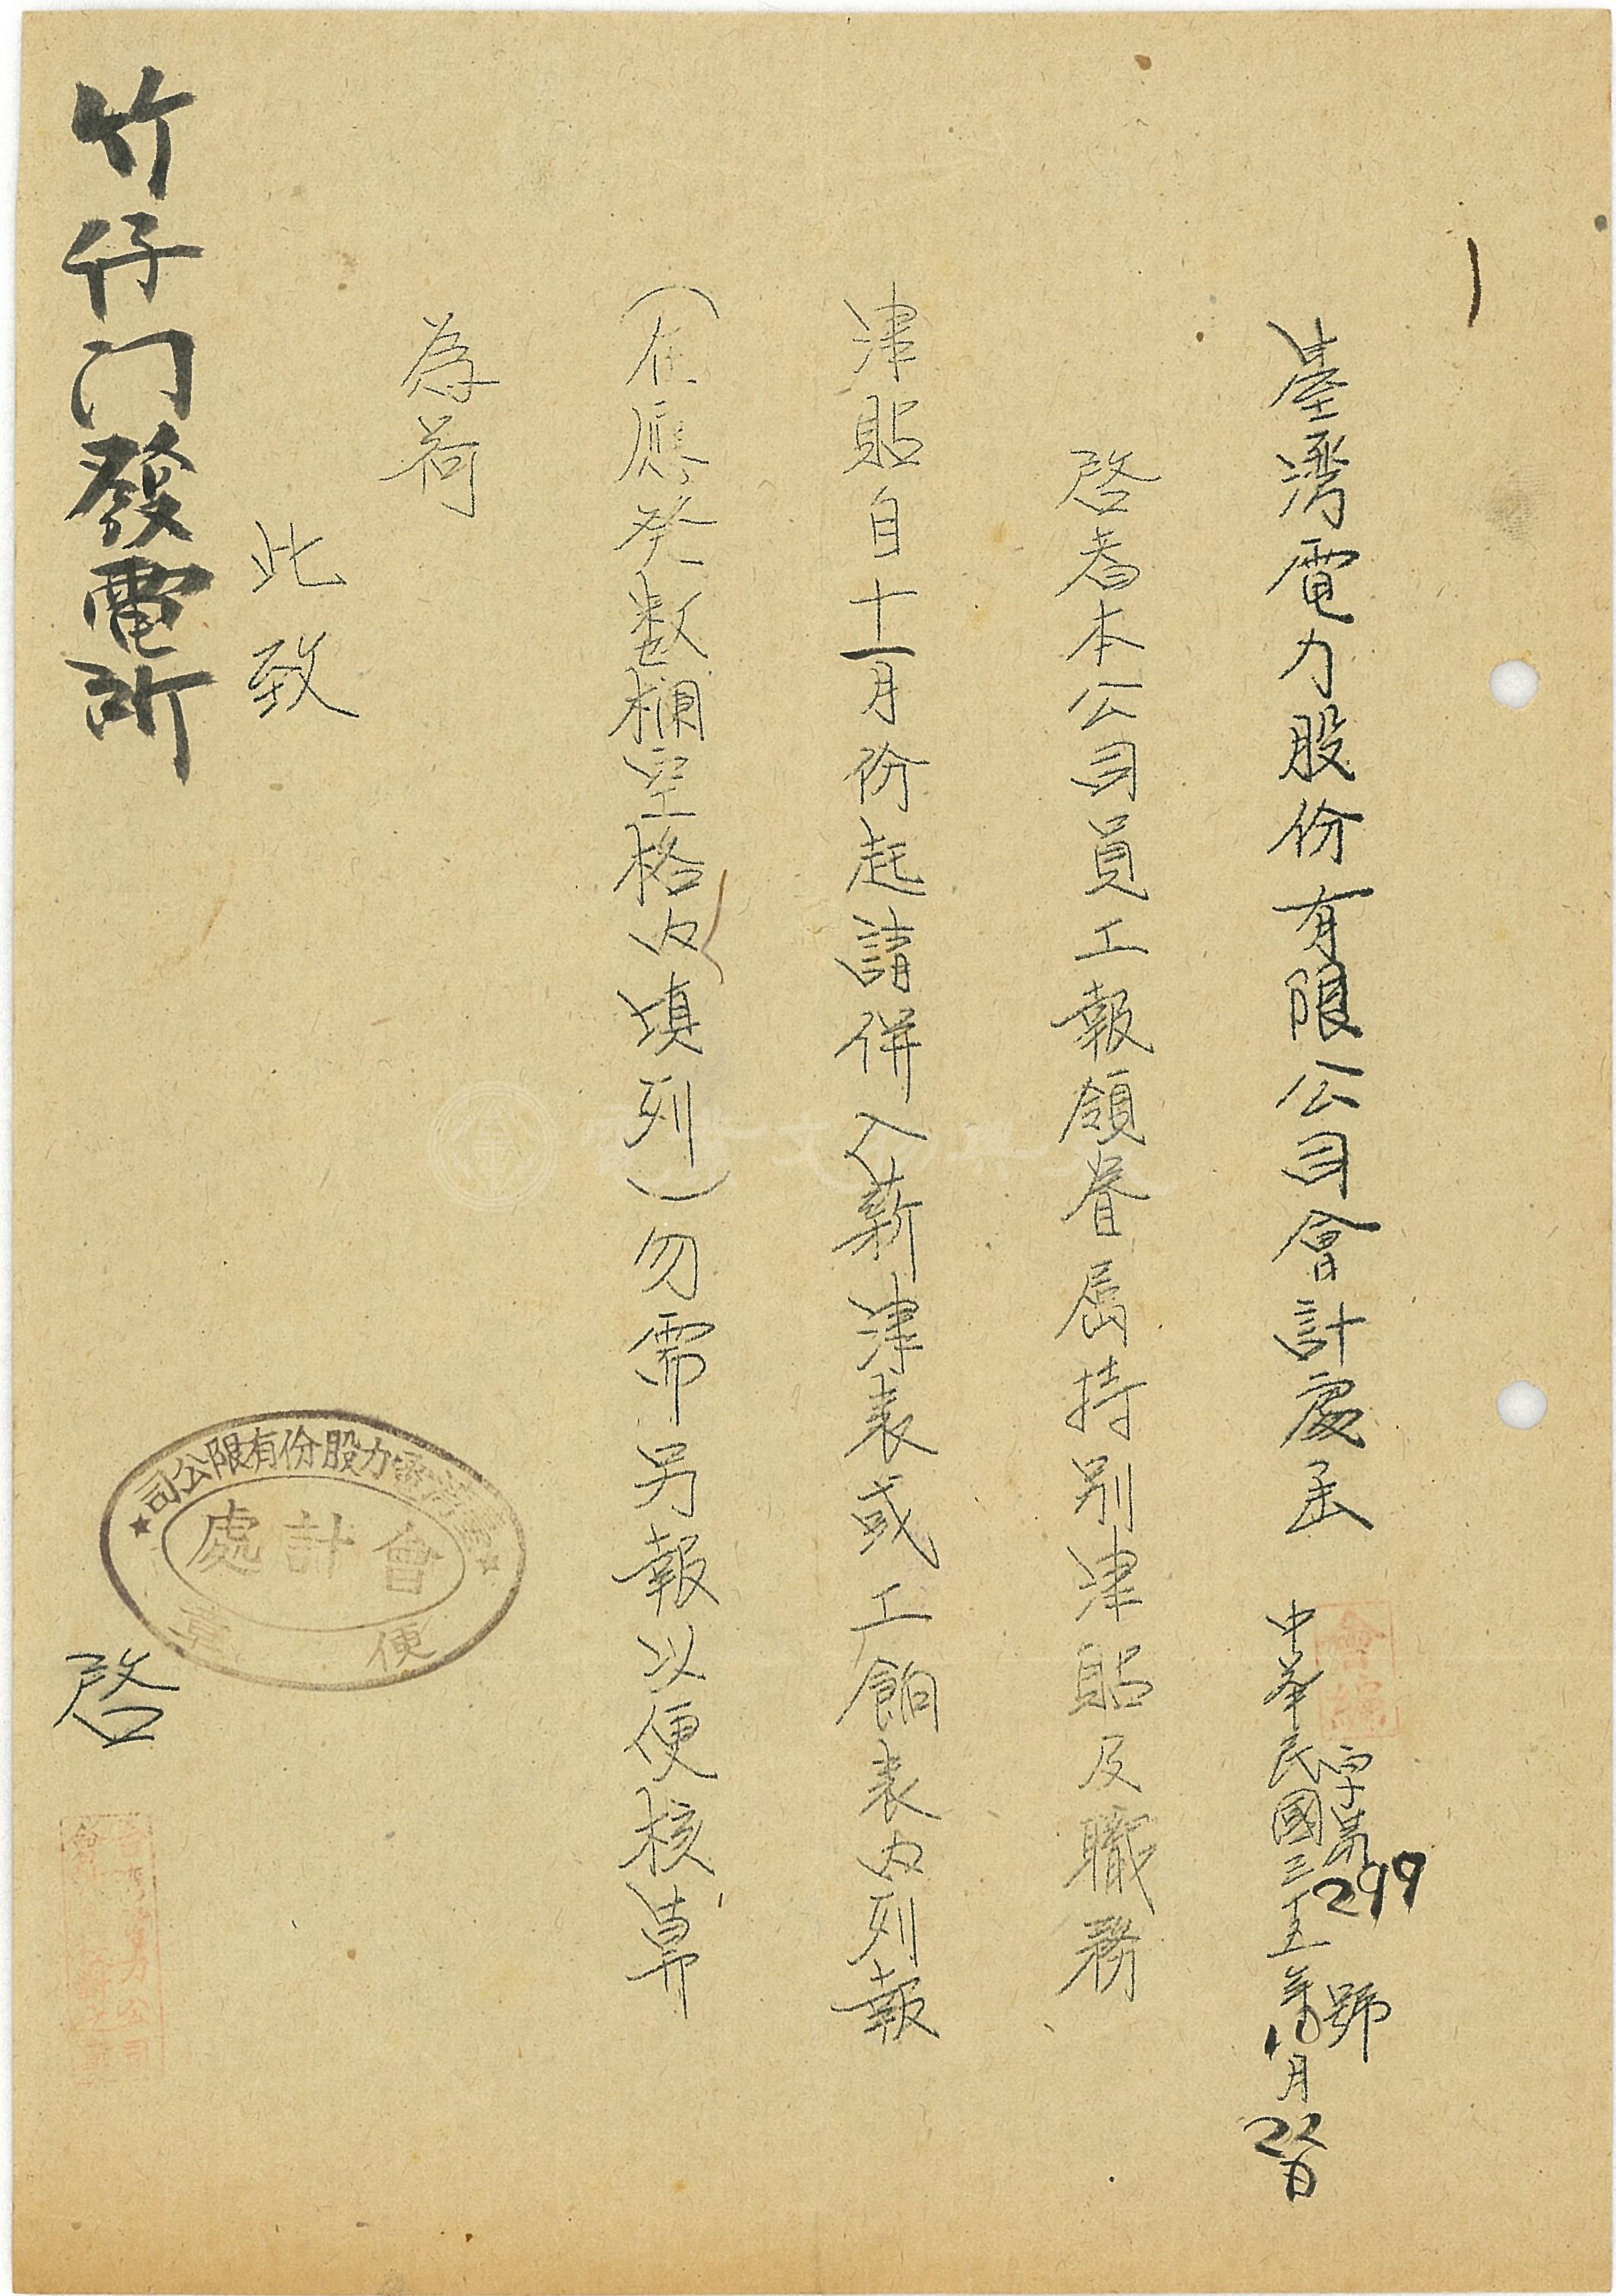 臺灣電力股份有限公司會計處函
會綜
字第299號
中華民國三十五年10月22日
啓者本公司員工報領眷屬特別津貼及職務
津貼自十一月份起請併入薪津表或工餉表内列報
(在應発数欄空格内填列)勿需另報以便核算
為荷
此致
竹仔门發電所
臺灣電力股份有限公司
會計處
便章
啓